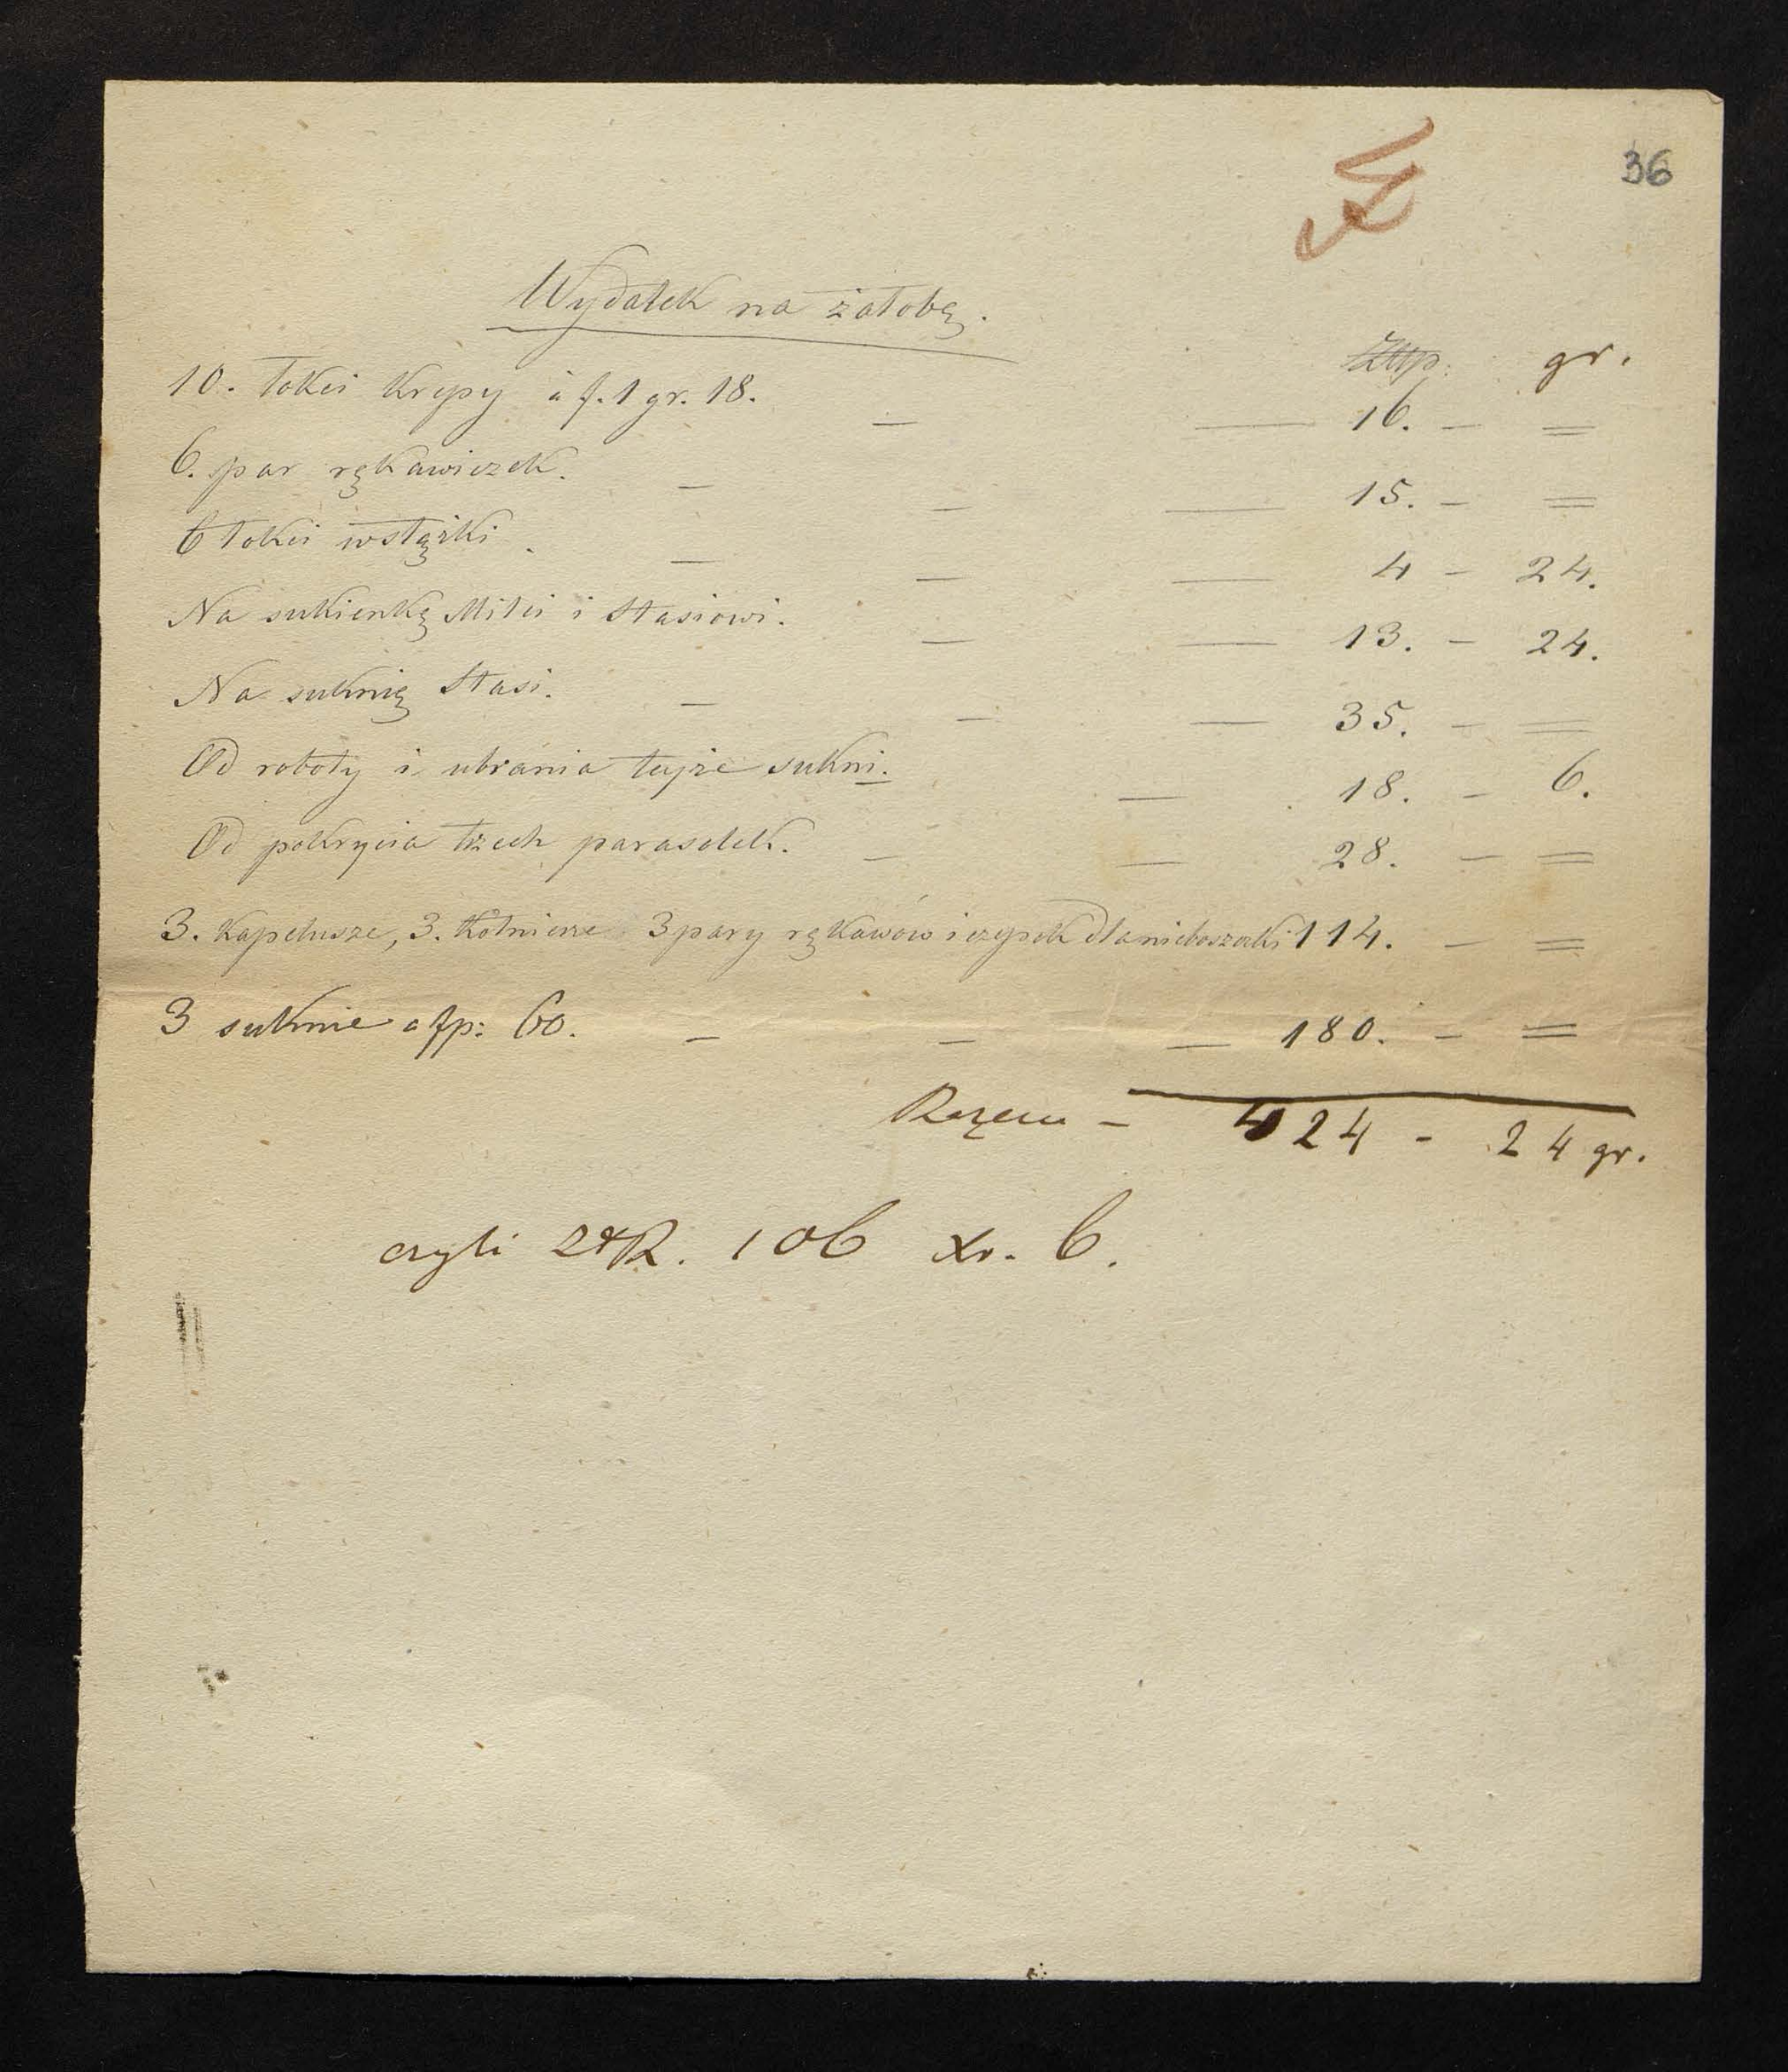 36
Wydatek na żałobę.
Złtp. gr.
10. łokci krepy à f. 1 gr. 18. — — 16. - =
6. par rękawiczek. — — — 15. - =
6 łokci wstążki. — — — 4 - 24.
Na sukienkę Milci i Stasiowi. — — 13. - 24.
Na suknię Stasi. — — — 35. - =
Od roboty i ubrania tejże sukni. — 18. - 6.
Od pokrycia trzech parasolek. — — 28. - =
3. Kapelusze, 3. Kołnierze 3 pary rękawów i czepek dla nieboszczki 114. - =
3 suknie a fp: 60. — — — 180. - =
Razem - 424 - 24 gr.
czyli ZłR. 106 Xr. 6.